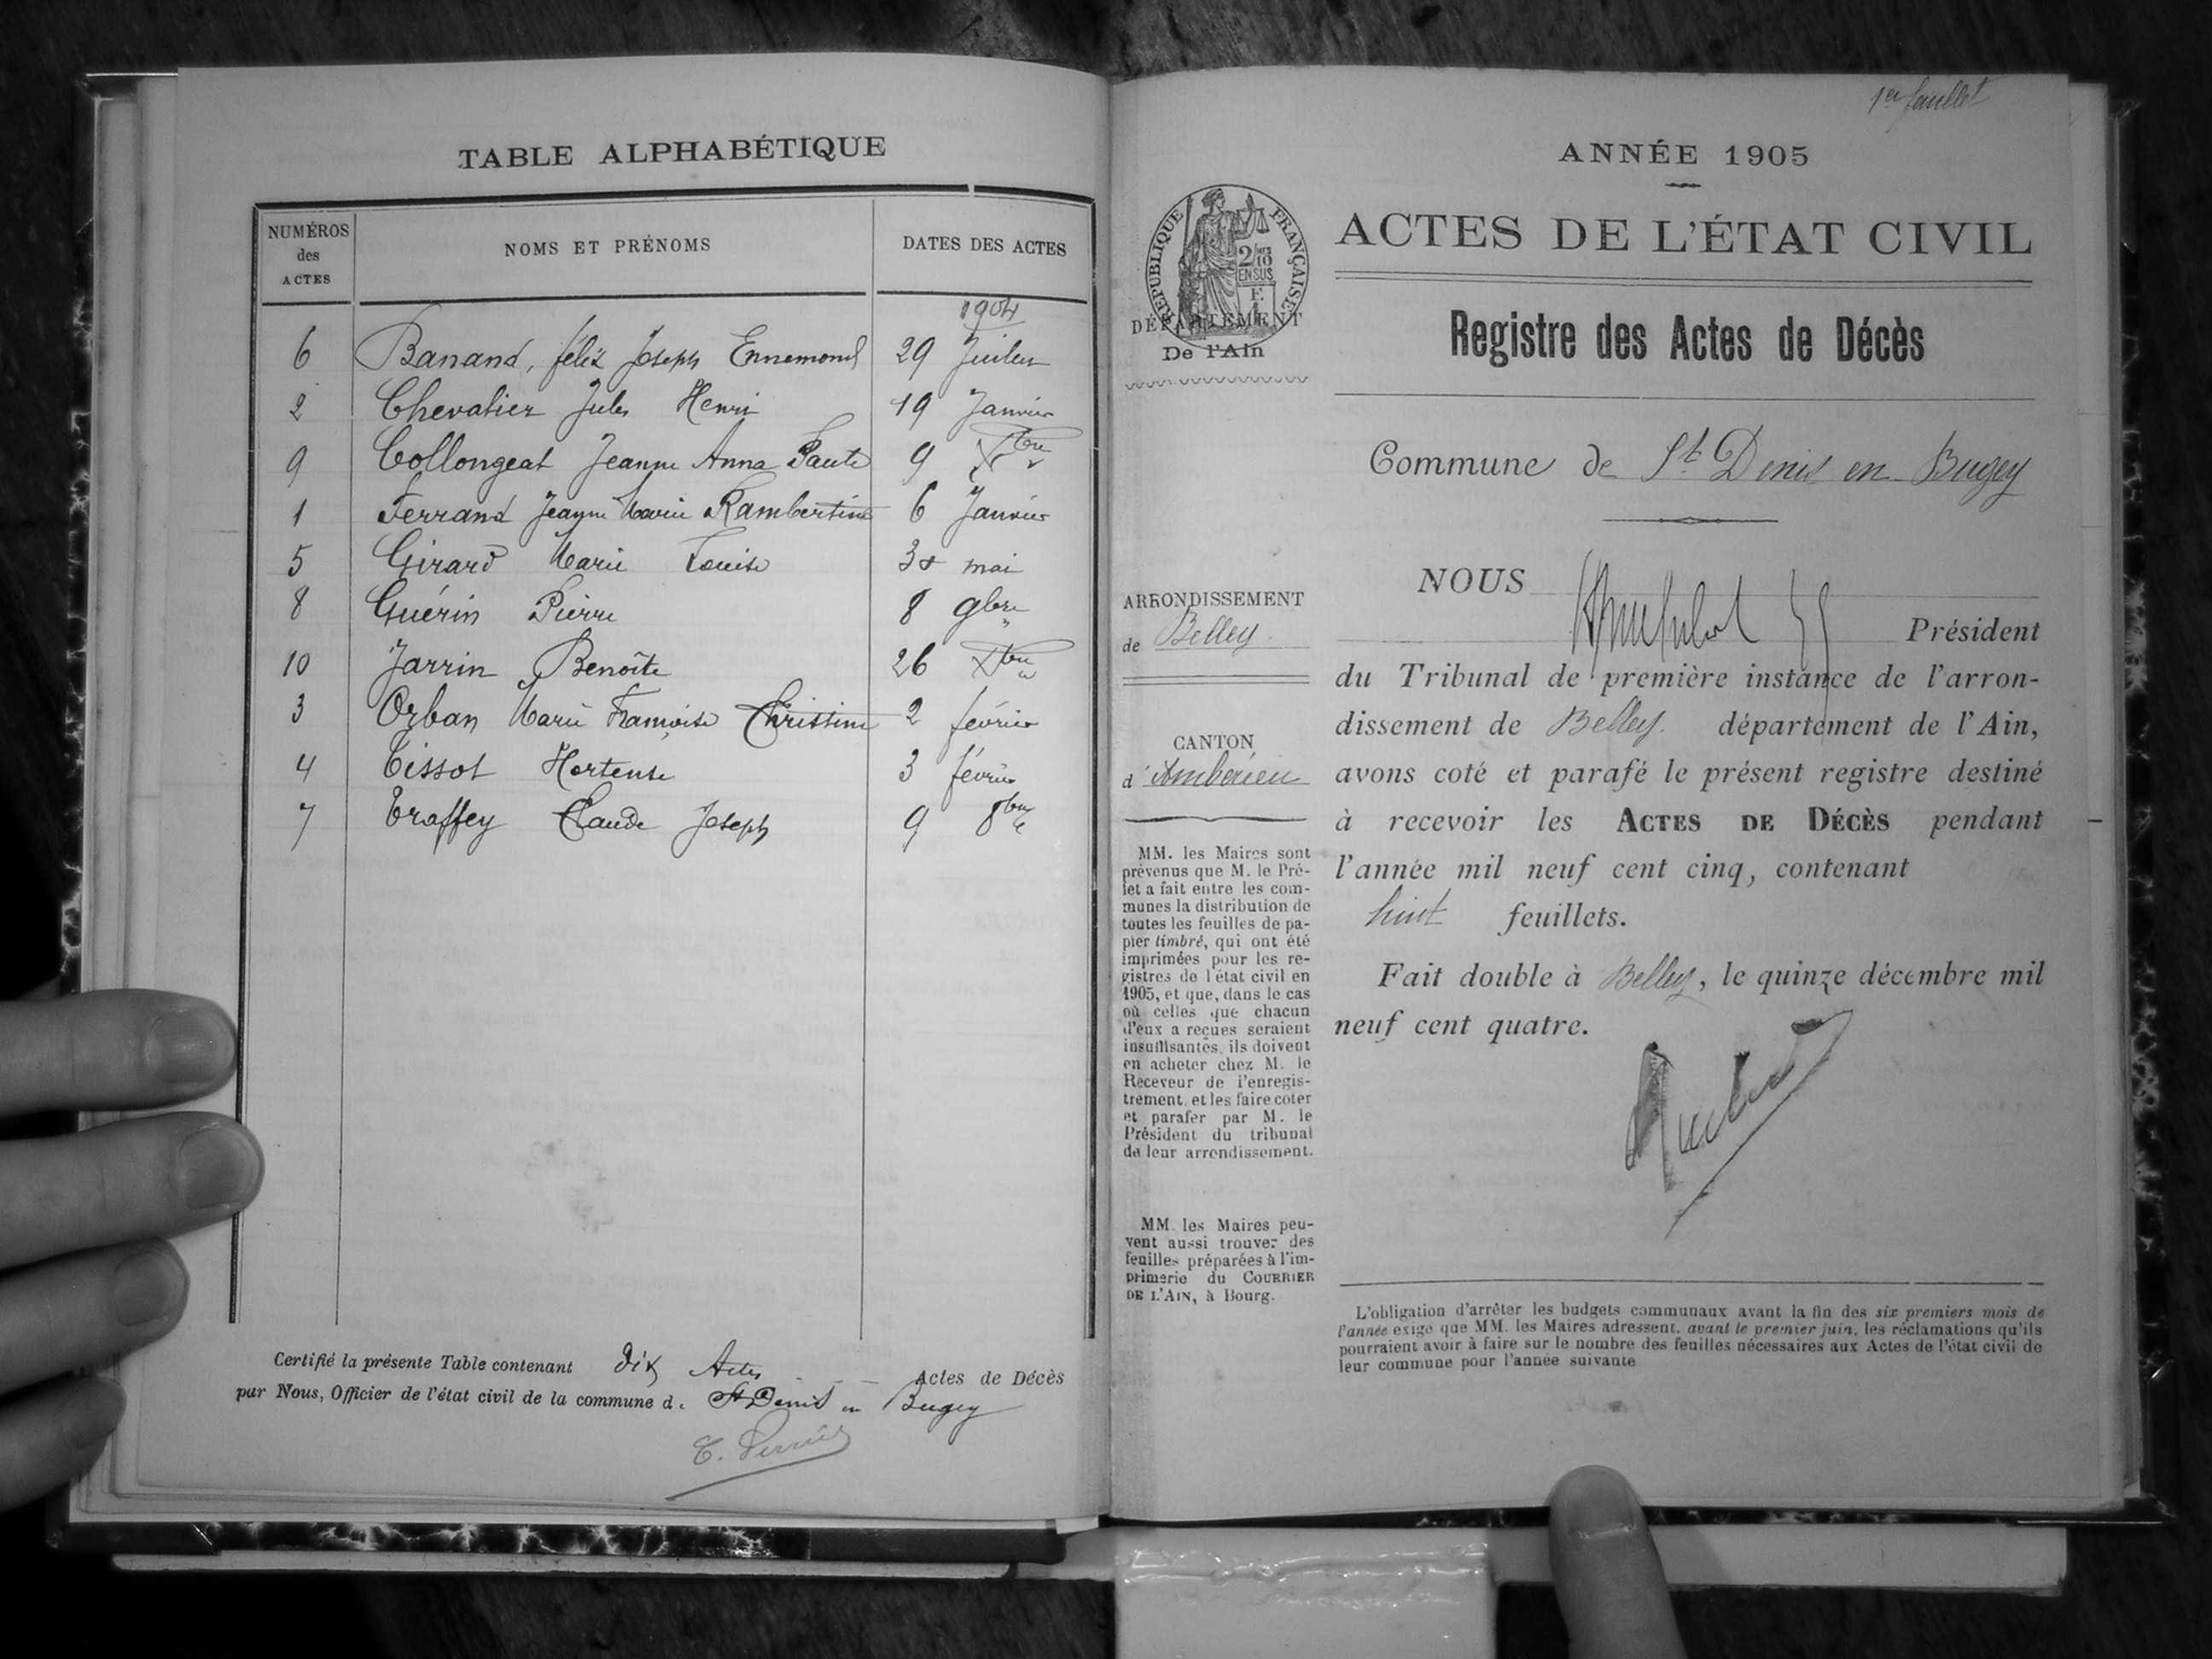 TABLE ALPHABÉTIQUE
NUMÉROS des ACTES NOMS ET PRÉNOMS DATES DES ACTES
1904
6 Banand, félix Joseph Ennemond 29 Juillet
2 Chevalier Jules Henri 19 Janvier
9 Collongeat Jeanne Anna 9 Xbre
1 Ferrand Jeanne Marie Rambertine 6 Janvier
5 Girard Marie Louise mai
8 Guérin Pierre 8 9bre
10 Jarrin Benoîte 26 Xbre
3 Orban Marie Françoise Christine 2 février
4 Tissot Hortense 3 février
7 Traffey Claude Joseph 9 8bre
Certifié la présente Table contenant dix Actes Actes de Décès
par Nous, Officier de l'état civil de la commune d. St Denis en Bugey
1er feuillet
ANNÉE 1905
RÉPUBLIQUE FRANÇAISE
2/10 EN SUS
DÉPARTEMENT
De l'Ain
ACTES DE L'ÉTAT CIVIL
Registre des Actes de Décès
Commune de St Denis en Bugey
ARRONDISSEMENT
de Belley
CANTON
d'Ambérieu
MM. les Maires sont
prévenus que M. le Pré-
fet a fait entre les com-
munes la distribution de
toutes les feuilles de pa-
pier timbré, qui ont été
imprimées pour les re-
gistres de l'état civil en
1905, et que, dans le cas
où celles que chacun
d'eux a reçues seraient
insuffisantes, ils doivent
en acheter chez M. le
Receveur de l'enregis-
trement, et les faire coter
et parafer par M. le
Président du tribunal
de leur arrondissement.
MM. les Maires peu-
vent aussi trouver des
feuilles préparées à l'im-
primerie du COURRIER
DE L'AIN, à Bourg.
NOUS
Président
du Tribunal de première instance de l'arron-
dissement de Belley. département de l'Ain,
avons coté et parafé le présent registre destiné
à recevoir les ACTES DE DÉCÈS pendant
l'année mil neuf cent cinq, contenant
huit feuillets.
Fait double à Belley, le quinze décembre mil
neuf cent quatre.
L'obligation d'arrêter les budgets communaux avant la fin des six premiers mois de
l'année exige que MM. les Maires adressent, avant le premier juin, les réclamations qu'ils
pourraient avoir à faire sur le nombre des feuilles nécessaires aux Actes de l'état civil de
leur commune pour l'année suivante